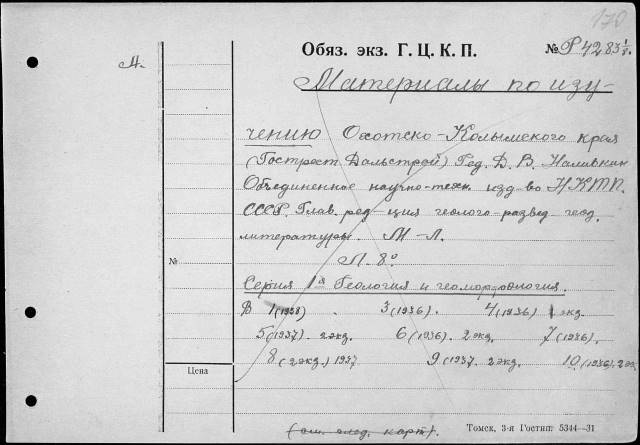 170
Обяз. экз. Г. Ц. К. П. № Р4283 1/8.
А.
Материалы по изу-
чению Охотско-Колымского края
(Гострест Дальстрой) Ред. Д. В. Наливкин
Объединенное научно-техн. изд-во НКТП.
СССР. Глав. ред-ция геолого-развед. геод.
литературы. М-Л.
Л. 8°
№
Серия 1я Геология и геоморфология.
В 1 (1938) . 3 (1936) 4 (1936) 1 экз.
5 (1937) 2 экз. 6 (1936). 2 экз. 7 (1936).
8 (2 экз.) 1937 9 (1937. 2 экз. 10 (1936). 2 экз.
Цена
(см. след. карт).
Томск, 3-я Гостип. 5344—31